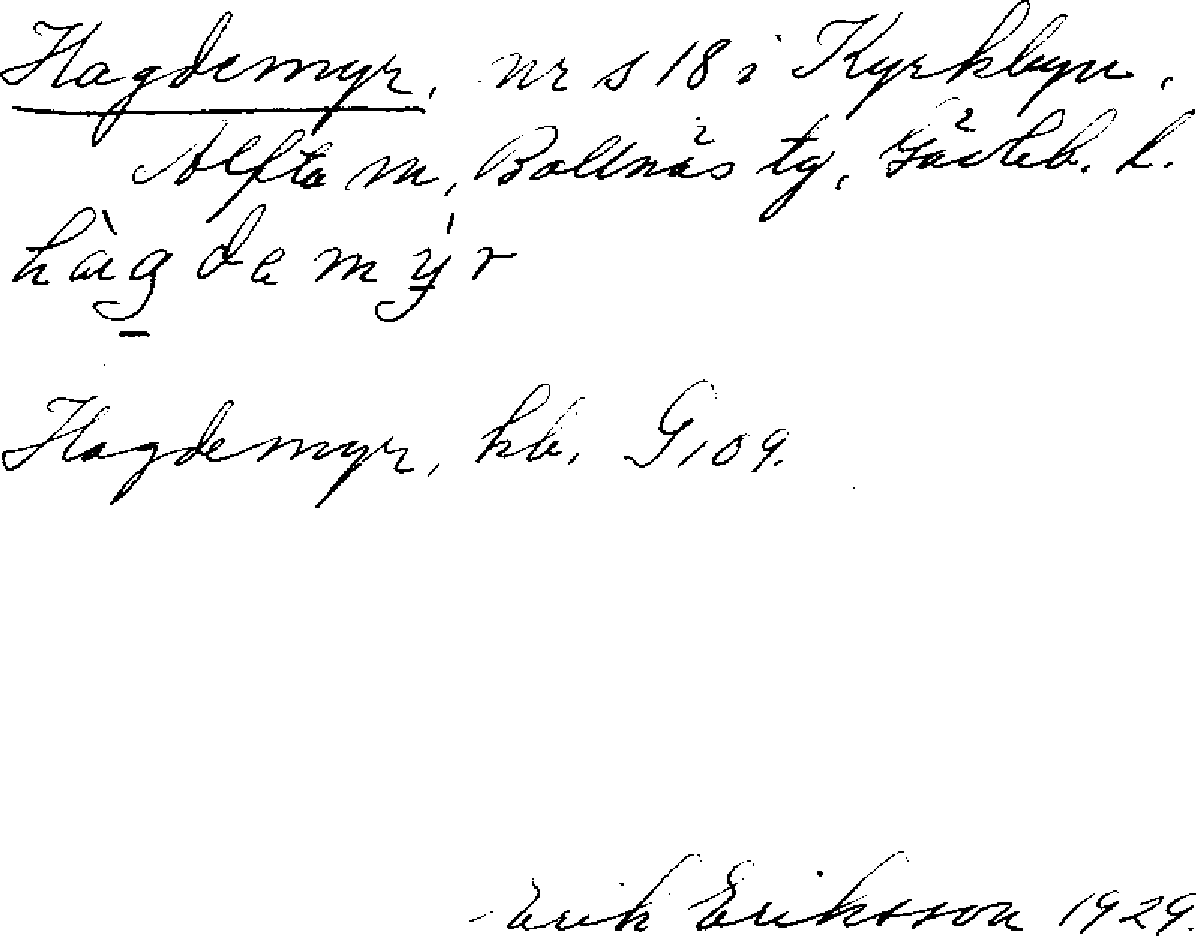 Hagdemyr, nr s 18 i Kyrkbyn,
Alfta sn, Bollnäs tg, Gävleb. l.
hàgdemýr
Hagdemyr, kb. G, 09.
Erik Eriksson 1929.